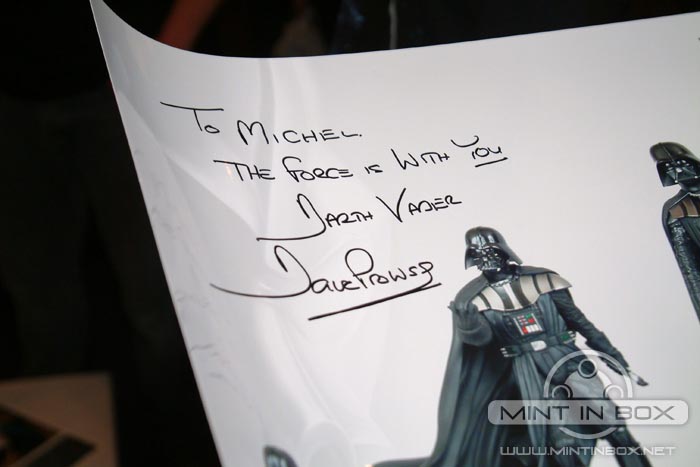 To Michel.
The Force is with you
Darth Vader
Dave Prowse
MINT IN BOX
WWW.MINTINBOX.NET